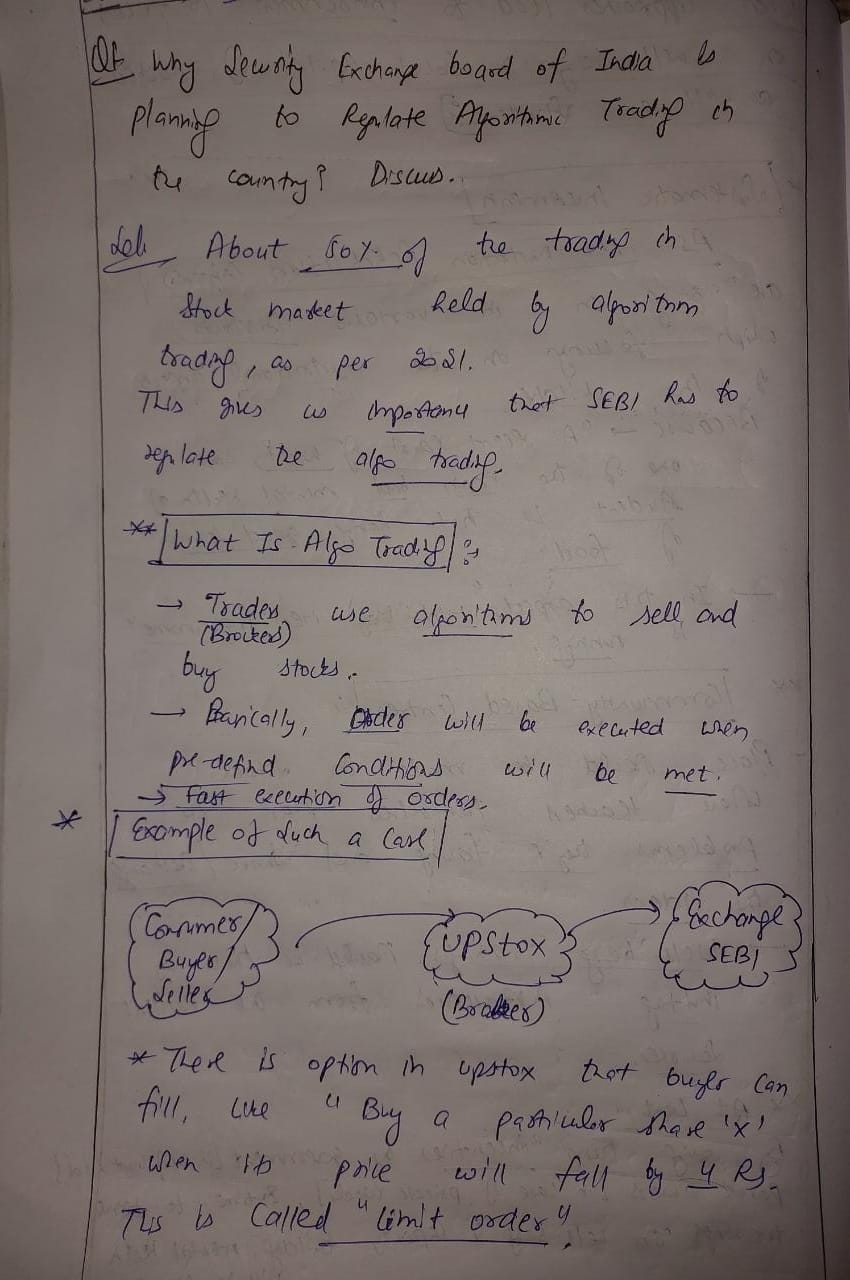 Q1 Why Security Exchange board of India is
planning to Regulate Algorithmic Trading in
the country? Discuss.
Sol. About 50% of the trading in
Stock market held by algorithm
trading, as per 2021.
This gives us importance that SEBI has to
regulate the algo trading.
** What Is Algo Trading :-
→ Traders use algorithms to sell and
(Brokers)
buy stocks.
→ Basically, Order will be executed when
pre-defind conditions will be met.
→ Fast execution of orders.
* Example of Such a Case
Consumer/ UPStox Exchange
Buyer/ SEBI
Seller (Broker)
* There is option in upstox that buyer can
fill, like "Buy a particular share 'x'
when its price will fall by 4 Rs.
This is Called "limit order".